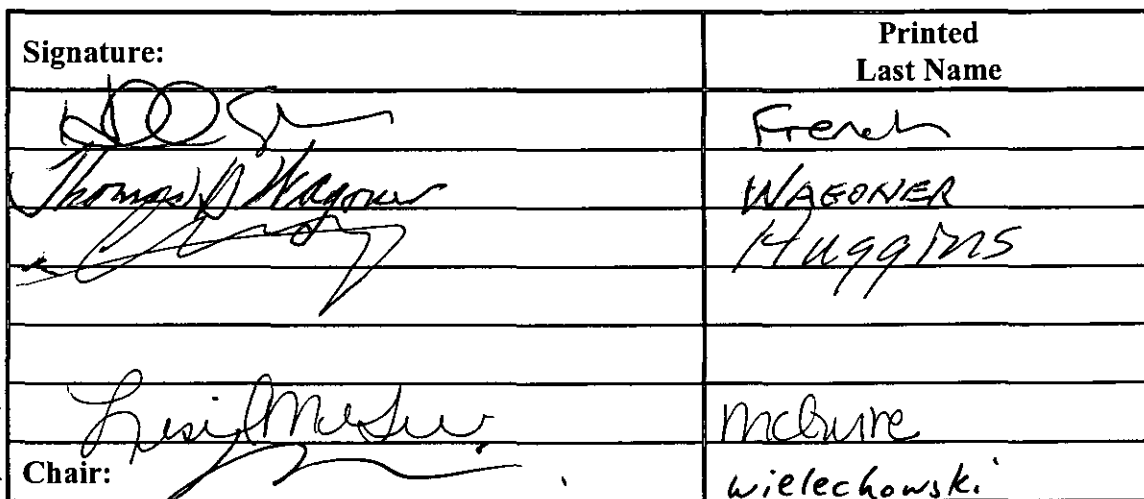 Signature: Printed
Last Name
French
Thomas D Wagoner WAGONER
Huggins
McGuire
Chair: wielechowski